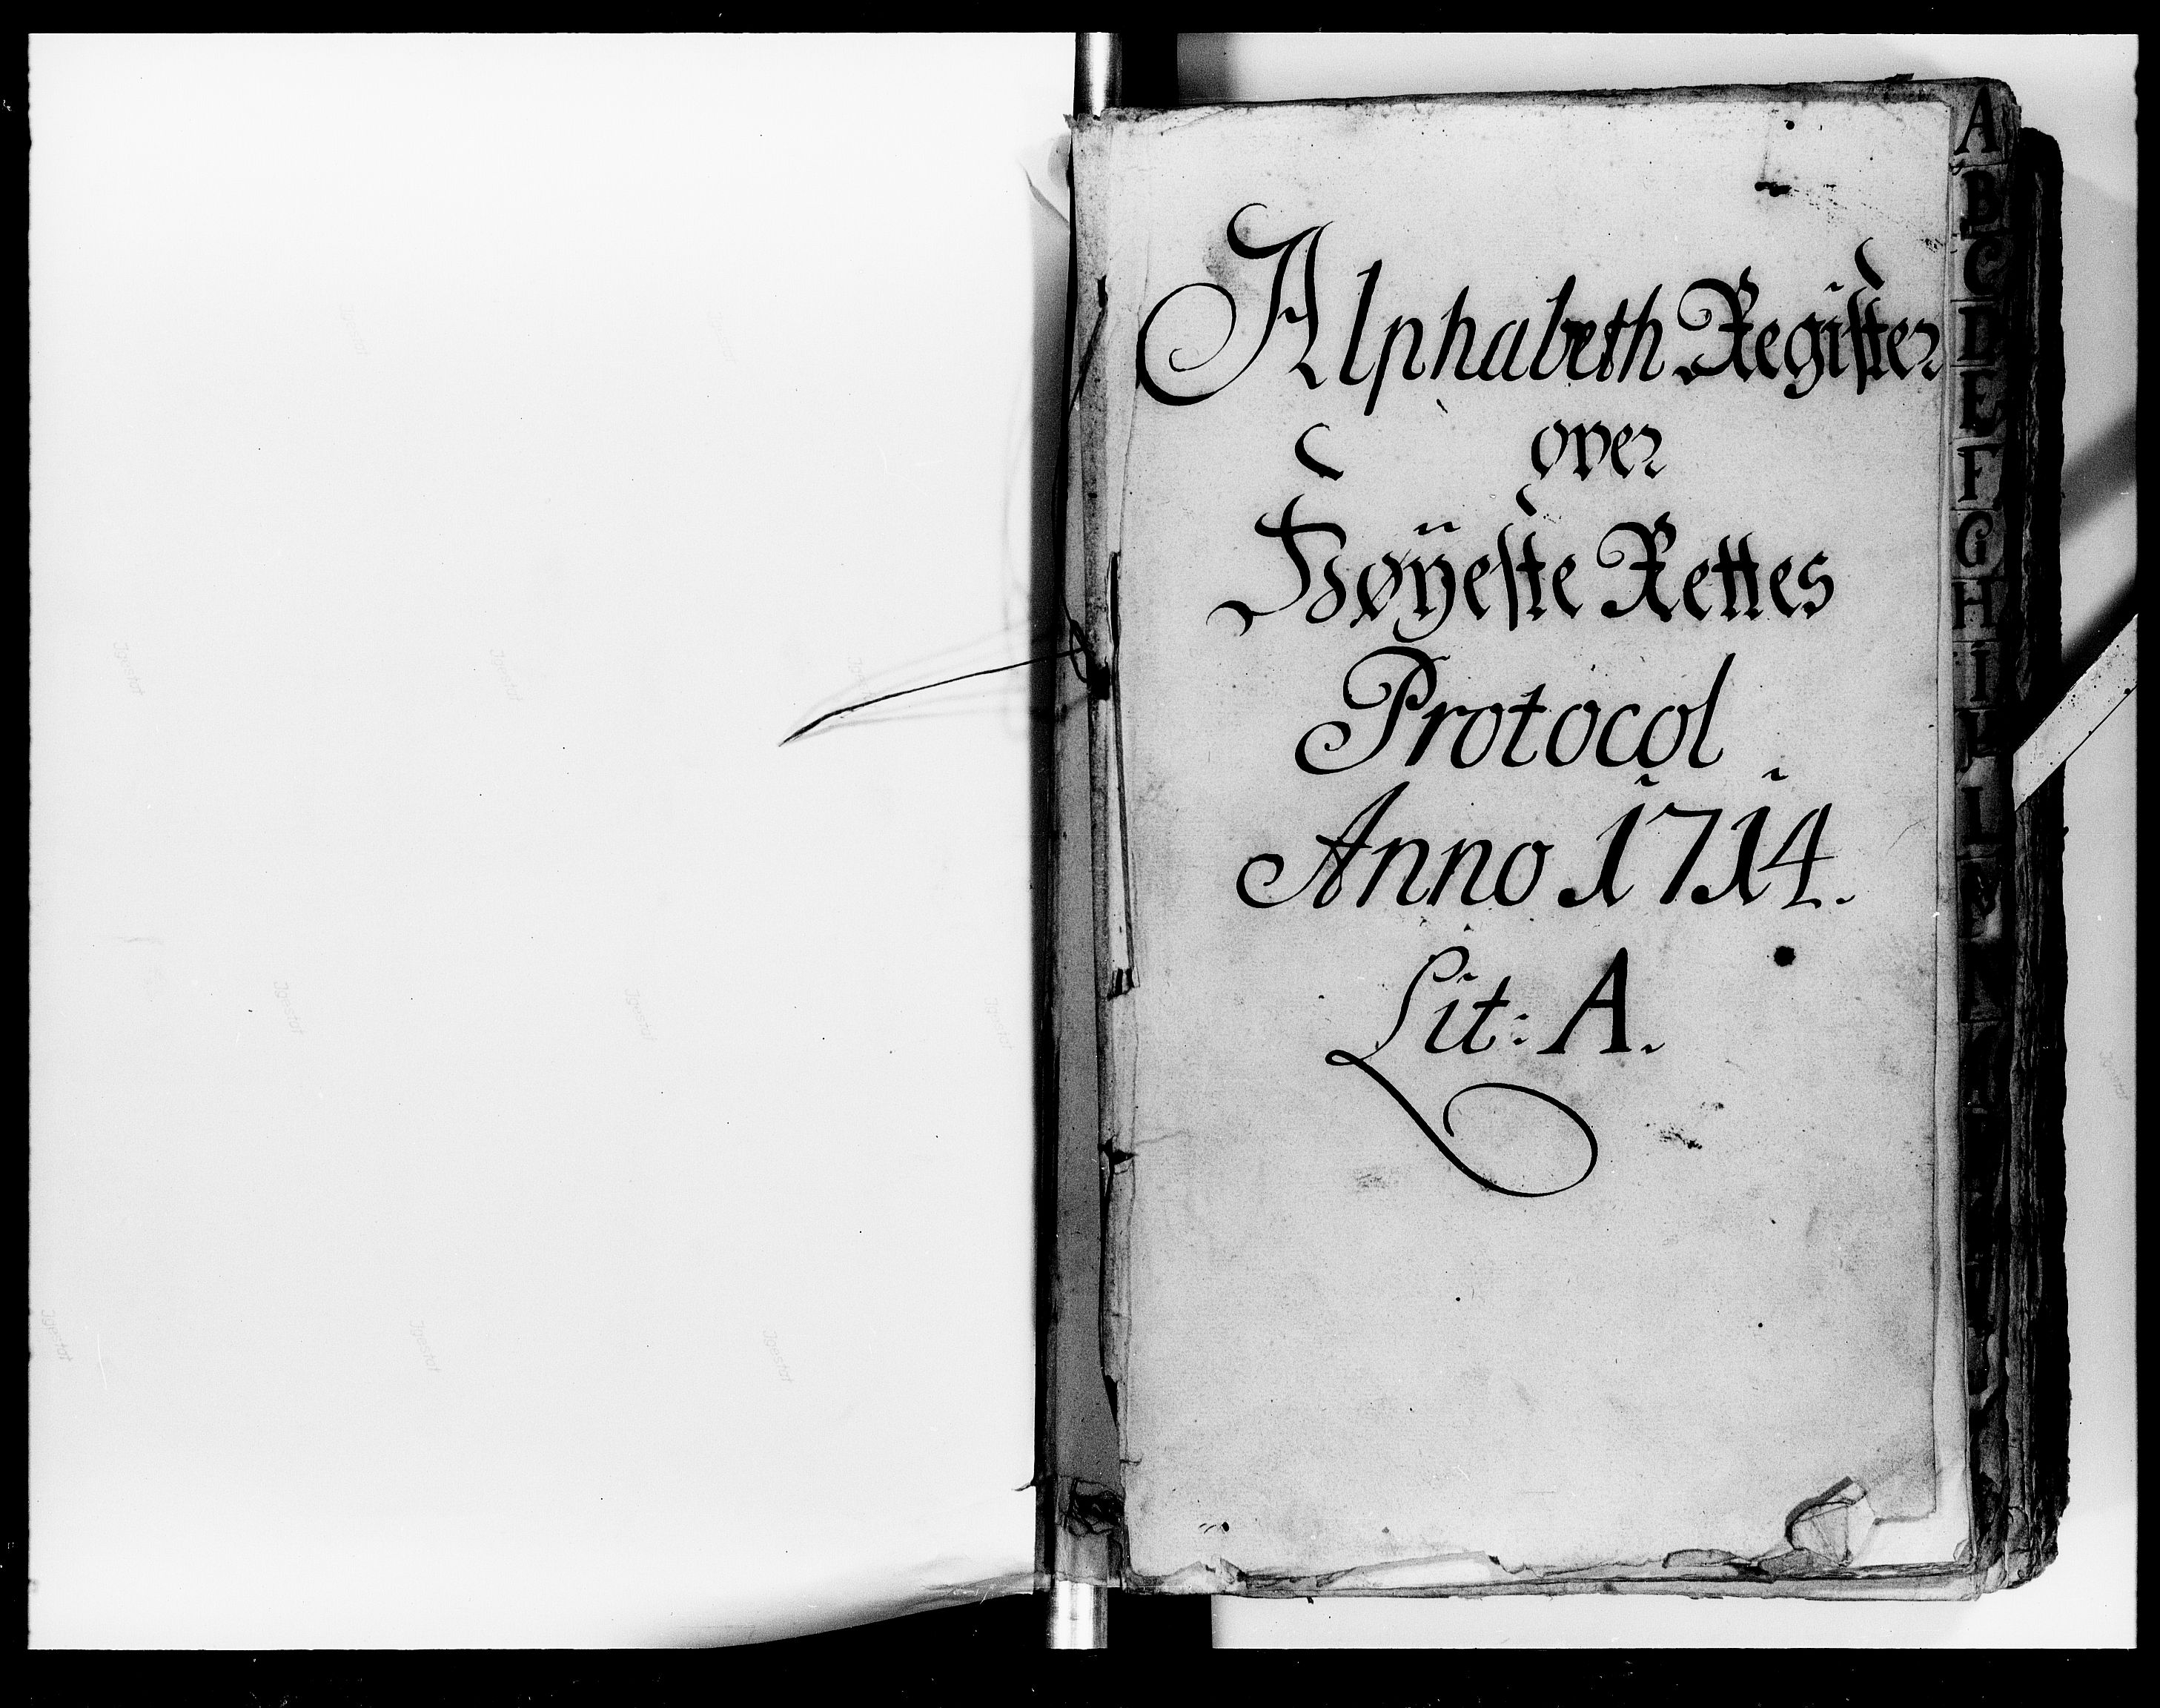 Alphabeth Register
over
Høÿeste Rettes
Protocol
Anno 1714.
Lit: A.
A
B
C
D
E
F
G
H
I